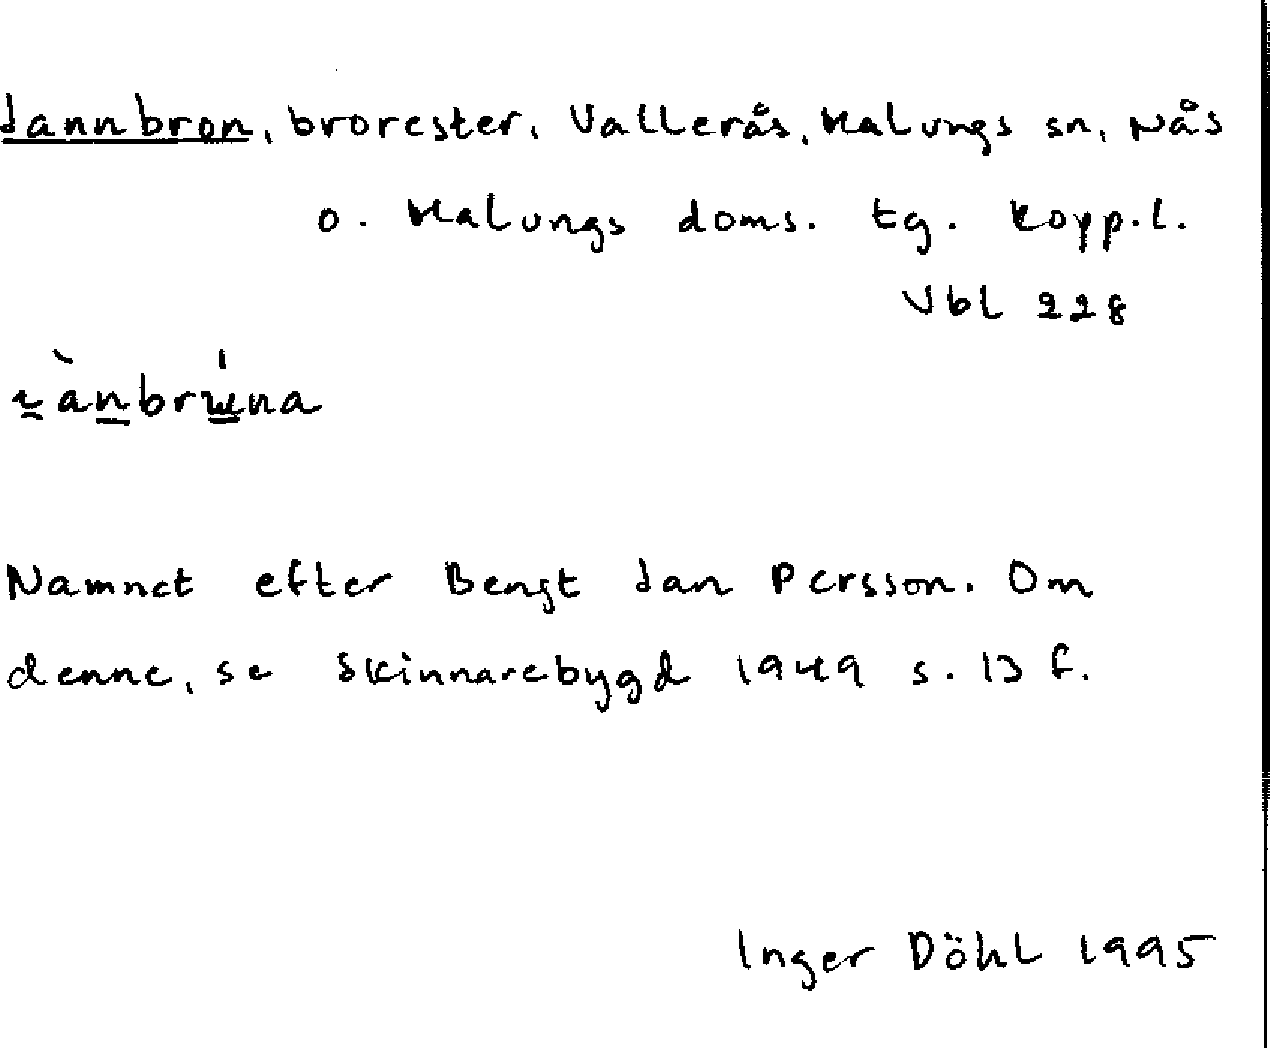 Jannbron, brorester, Vallerås, Malungs sn, Nås
o. Malungs doms. tg. Kopp.l.
Vbl 228
Namnet efter Bengt Jan Persson. Om
denne, se Skinnarebygd 1949 s. 13 f.
Inger Döhl 1995